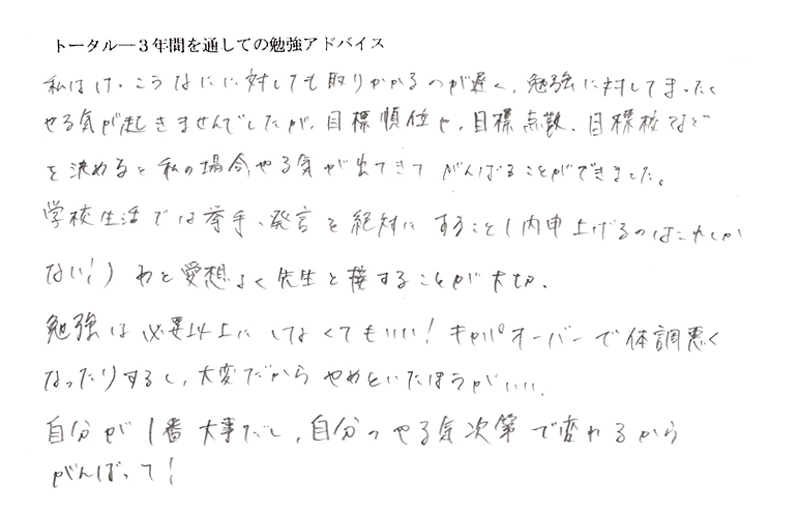 トータル―3年間を通しての勉強アドバイス
私はけっこうなにに対しても取りかかるのが遅く、勉強に対してまったく
やる気が起きませんでしたが、目標順位や、目標点数、目標校など
を決めると私の場合やる気が出てきてがんばることができました。
学校生活では挙手、発言を絶対にすること(内申上げるのはこれしか
ない!)あと愛想よく先生と接することが大切、
勉強は必要以上にしなくてもいい!キャパオーバーで体調悪く
なったりするし、大変だからやめといたほうがいい、
自分が1番大事だし、自分のやる気次第で変われるから
がんばって!